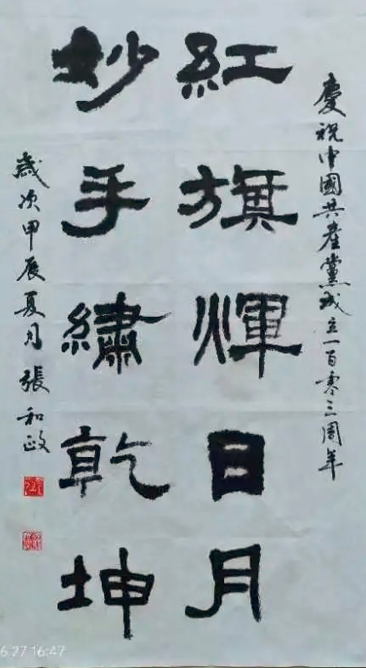 慶祝中國共產黨成立一百零三周年
紅旗煇日月
妙手繡乾坤
歲次甲辰夏月張和政
6.27 16:47